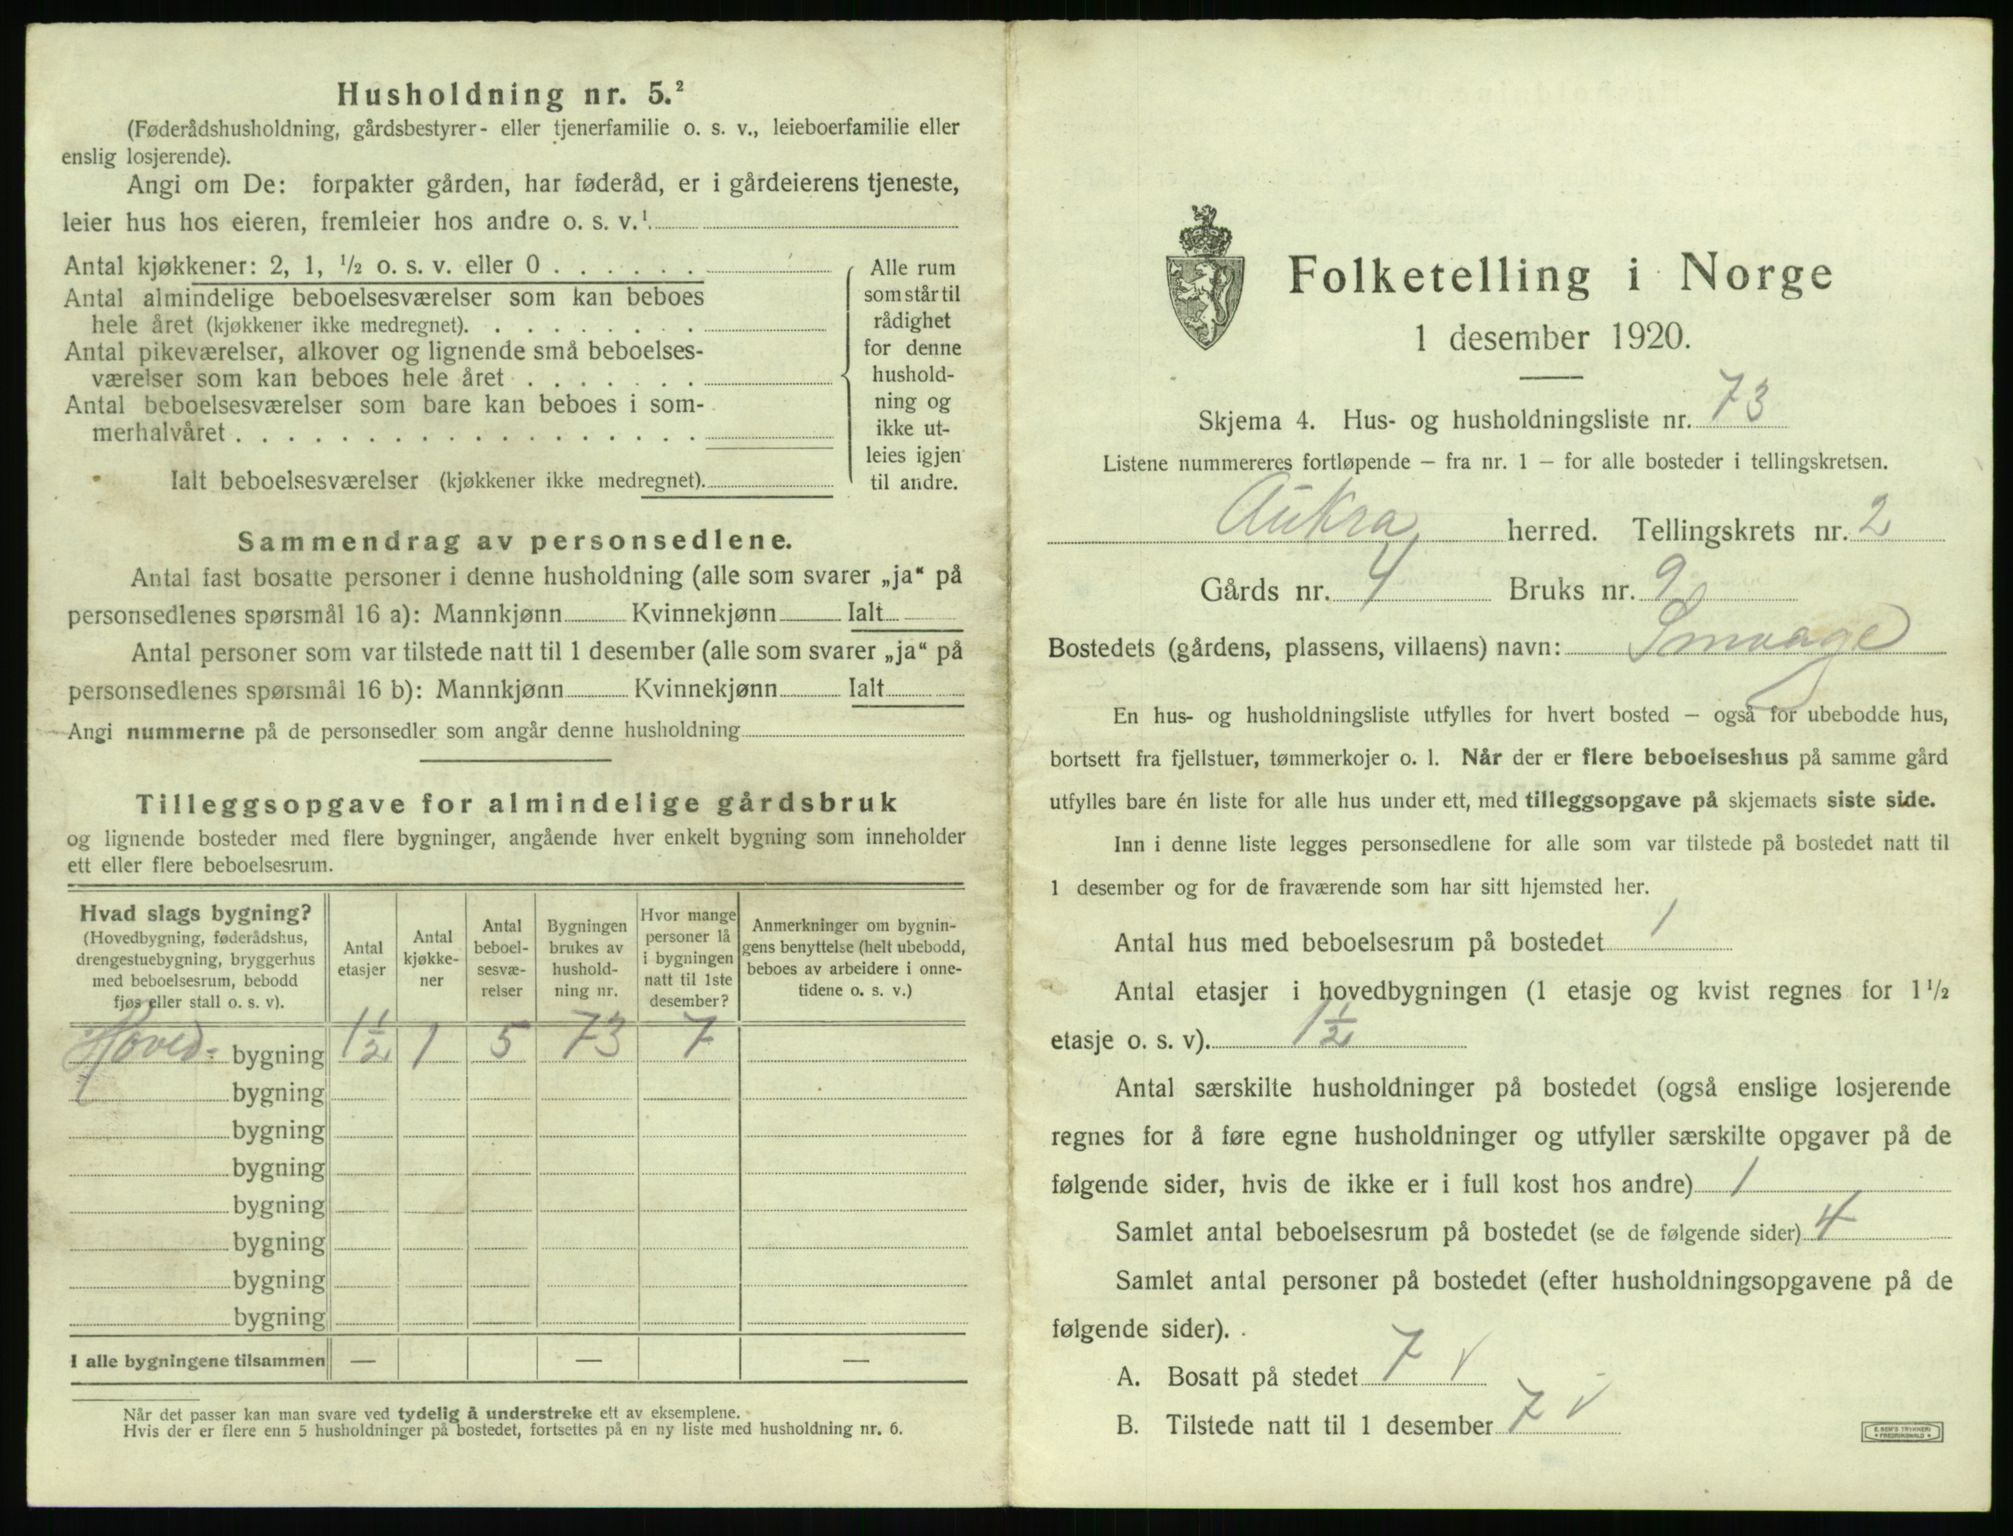 Husholdning nr. 5.²
(Føderådshusholdning, gårdsbestyrer- eller tjenerfamilie o. s. v., leieboerfamilie eller
enslig losjerende).
Angi om De: forpakter gården, har føderåd, er i gårdeierens tjeneste,
leier hus hos eieren, fremleier hos andre o. s. v.¹
Antal kjøkkener: 2, 1, ½ o. s. v. eller 0 . . . . . .
Antal almindelige beboelsesværelser som kan beboes
hele året (kjøkkener ikke medregnet). . . . . . . . .
Antal pikeværelser, alkover og lignende små beboelses-
værelser som kan beboes hele året . . . . . . .
Antal beboelsesværelser som bare kan beboes i som-
merhalvåret . . . . . . . . . . . . . . . . . .
Ialt beboelsesværelser (kjøkkener ikke medregnet).
Alle rum
som står til
rådighet
for denne
hushold-
ning og
ikke ut-
leies igjen
til andre.
Sammendrag av personsedlene.
Antal fast bosatte personer i denne husholdning (alle som svarer „ja“ på
personsedlenes spørsmål 16 a): Mannkjønn Kvinnekjønn Ialt
Antal personer som var tilstede natt til 1 desember (alle som svarer „ja“ på
personsedlenes spørsmål 16 b): Mannkjønn Kvinnekjønn Ialt
Angi nummerne på de personsedler som angår denne husholdning
Tilleggsopgave for almindelige gårdsbruk
og lignende bosteder med flere bygninger, angående hver enkelt bygning som inneholder
ett eller flere beboelsesrum.
Hvad slags bygning?
(Hovedbygning, føderådshus,
drengestuebygning, bryggerhus
med beboelsesrum, bebodd
fjøs eller stall o. s. v).
Antal
etasjer
Antal
kjøkke-
ner
Antal
beboel-
sesvæ-
relser
Bygningen
brukes av
hushold-
ning nr.
Hvor mange
personer lå
i bygningen
natt til 1ste
desember?
Anmerkninger om bygnin-
gens benyttelse (helt ubebodd,
beboes av arbeidere i onne-
tidene o. s. v.)
Hoved- bygning 1½ 1 5 73 7
bygning
bygning
bygning
bygning
bygning
bygning
bygning
I alle bygningene tilsammen — — —
Når det passer kan man svare ved tydelig å understreke ett av eksemplene.
Hvis der er flere enn 5 husholdninger på bostedet, fortsettes på en ny liste med husholdning nr. 6.
Folketelling i Norge
1 desember 1920.
Skjema 4. Hus- og husholdningsliste nr. 73
Listene nummereres fortløpende – fra nr. 1 – for alle bosteder i tellingskretsen.
Aukra herred. Tellingskrets nr. 2
Gårds nr. 4 Bruks nr. 9
Bostedets (gårdens, plassens, villaens) navn: Smaage
En hus- og husholdningsliste utfylles for hvert bosted – også for ubebodde hus,
bortsett fra fjellstuer, tømmerkojer o. l. Når der er flere beboelseshus på samme gård
utfylles bare én liste for alle hus under ett, med tilleggsopgave på skjemaets siste side.
Inn i denne liste legges personsedlene for alle som var tilstede på bostedet natt til
1 desember og for de fraværende som har sitt hjemsted her.
Antal hus med beboelsesrum på bostedet 1
Antal etasjer i hovedbygningen (1 etasje og kvist regnes for 1½
etasje o. s. v). 1½
Antal særskilte husholdninger på bostedet (også enslige losjerende
regnes for å føre egne husholdninger og utfyller særskilte opgaver på de
følgende sider, hvis de ikke er i full kost hos andre) 1
Samlet antal beboelsesrum på bostedet (se de følgende sider) 4
Samlet antal personer på bostedet (efter husholdningsopgavene på de
følgende sider).
A. Bosatt på stedet 7 v
B. Tilstede natt til 1 desember 7 v
E. SEM'S TRYKKERI
FREDRIKSHALD